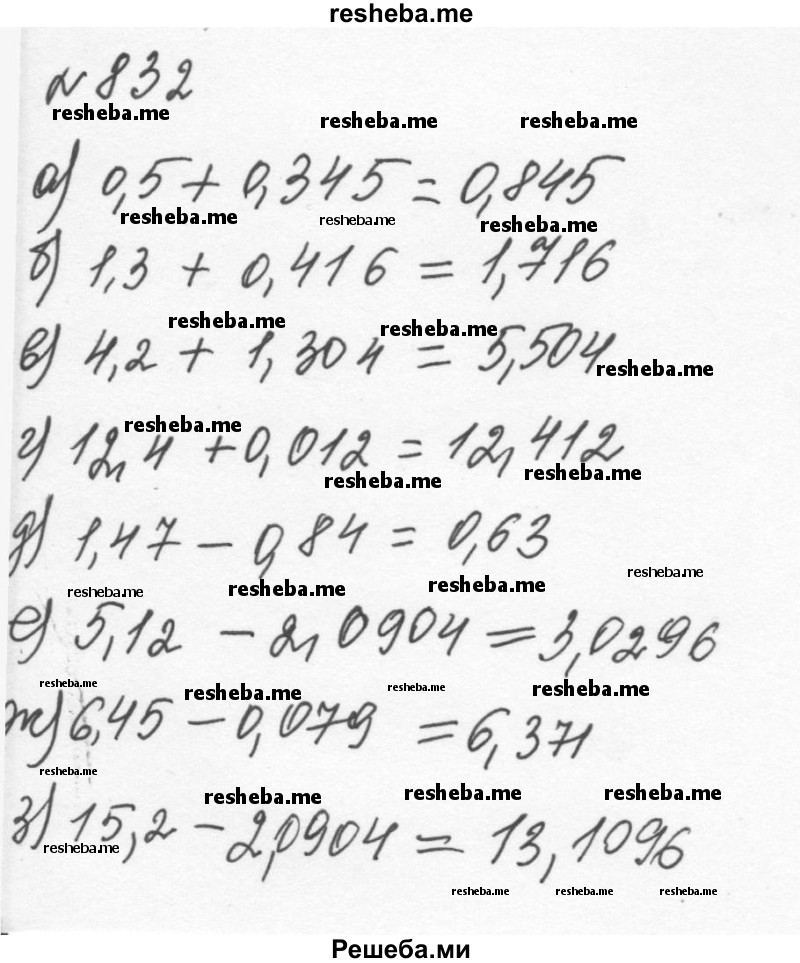 resheba.me
№ 832
resheba.me
resheba.me resheba.me
а) 0,5 + 0,345 = 0,845
resheba.me resheba.me resheba.me
б) 1,3 + 0,416 = 1,716
resheba.me resheba.me
в) 4,2 + 1,304 = 5,504
resheba.me
resheba.me
г) 12,4 + 0,012 = 12,412
resheba.me resheba.me
д) 1,47 - 0,84 = 0,63
resheba.me
resheba.me resheba.me resheba.me
е) 5,12 - 2,0904 = 3,0296
resheba.me resheba.me resheba.me resheba.me
ж) 6,45 - 0,079 = 6,371
resheba.me
resheba.me resheba.me resheba.me
з) 15,2 - 2,0904 = 13,1096
resheba.me
resheba.me resheba.me resheba.me
Решеба.ми